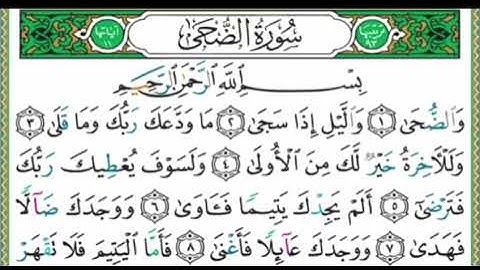 ترتيبها ٩٣ سُورَةُ الضُّحَىٰ آياتها ١١
بِسْمِ اللَّهِ الرَّحْمَٰنِ الرَّحِيمِ
وَالضُّحَىٰ ۝١ وَاللَّيْلِ إِذَا سَجَىٰ ۝٢ مَا وَدَّعَكَ رَبُّكَ وَمَا قَلَىٰ ۝٣
وَلَلْآخِرَةُ خَيْرٌ لَّكَ مِنَ الْأُولَىٰ ۝٤ وَلَسَوْفَ يُعْطِيكَ رَبُّكَ
فَتَرْضَىٰ ۝٥ أَلَمْ يَجِدْكَ يَتِيمًا فَآوَىٰ ۝٦ وَوَجَدَكَ ضَآلًّا
فَهَدَىٰ ۝٧ وَوَجَدَكَ عَآئِلًا فَأَغْنَىٰ ۝٨ فَأَمَّا الْيَتِيمَ فَلَا تَقْهَرْ